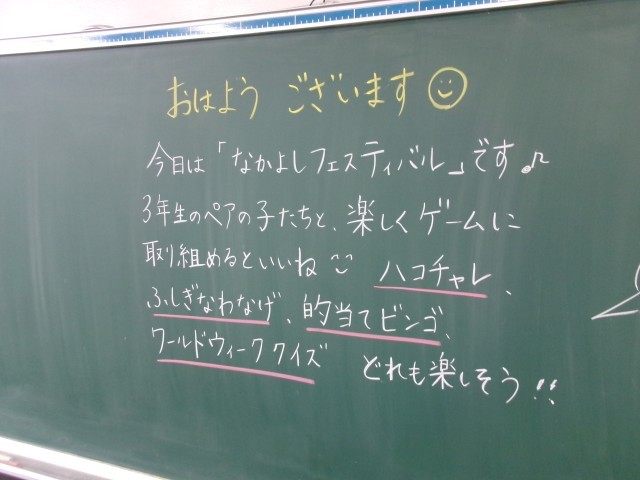 おはようございます
今日は「なかよしフェスティバル」です♪
3年生のペアの子たちと、楽しくゲームに
取り組めるといいね ハコチャレ、
ふしぎなわなげ、的当てビンゴ、
ワールドウィーククイズ どれも楽しそう!!